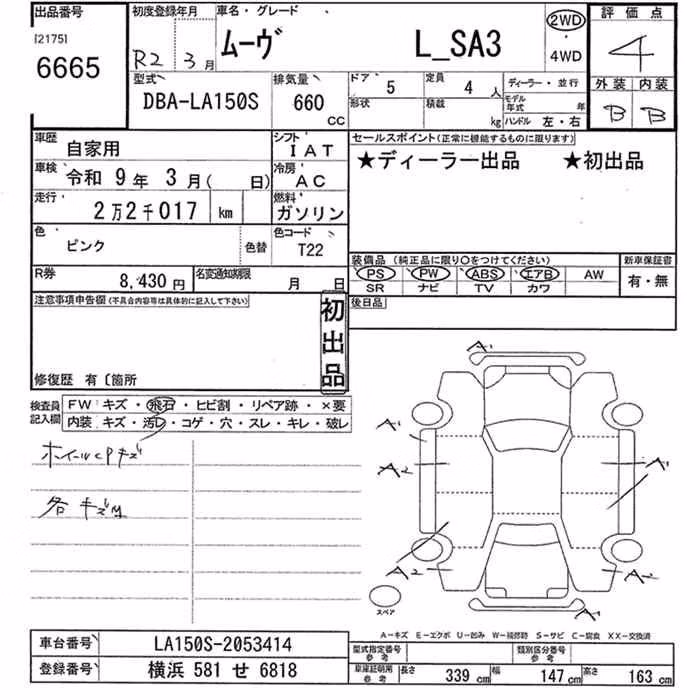 出品番号 初度登録年月 車名・グレード 2WD 評価点
[2175] R2 3月 ムーヴ L_SA3 ・ 4
6665 4WD
型式 排気量 ドア 5 定員 4 人 ディーラー・並行 外装 内装
DBA-LA150S 660 CC 形状 積載 kg モデル年式 年 B B
ハンドル 左・右
車歴 自家用 シフト IAT セールスポイント(正常に機能するものに限ります)
車検 令和 9年 3月( 日) 冷房 AC ★ディーラー出品 ★初出品
走行 2万2千017 km 燃料 ガソリン
色 ピンク 色替 色コード T22
装備品 (純正品に限り〇をつけてください) 新車保証書
R券 8,430円 名変通知期限 月 日 PS PW ABS エアB AW 有・無
SR ナビ TV カワ
注意事項申告欄(不具合内容等は具体的に記入して下さい) 初出品 後日品
修復歴 有 〔箇所
検査員記入欄 FW キズ・飛石・ヒビ割・リペア跡・×要
内装 キズ・汚レ・コゲ・穴・スレ・キレ・破レ
A' A'
ホイールCPキズ A2 A'
各キズ
A2 A2
スペア A'
A-キズ E-エクボ U-凹み W-補修跡 S-サビ C-腐食 XX-交換済
車台番号 LA150S-2053414 型式指定番号 参考 類別区分番号 参考
登録番号 横浜 581 せ 6818 車庫証明用 参考 長さ 339 cm 幅 147 cm 高さ 163 cm